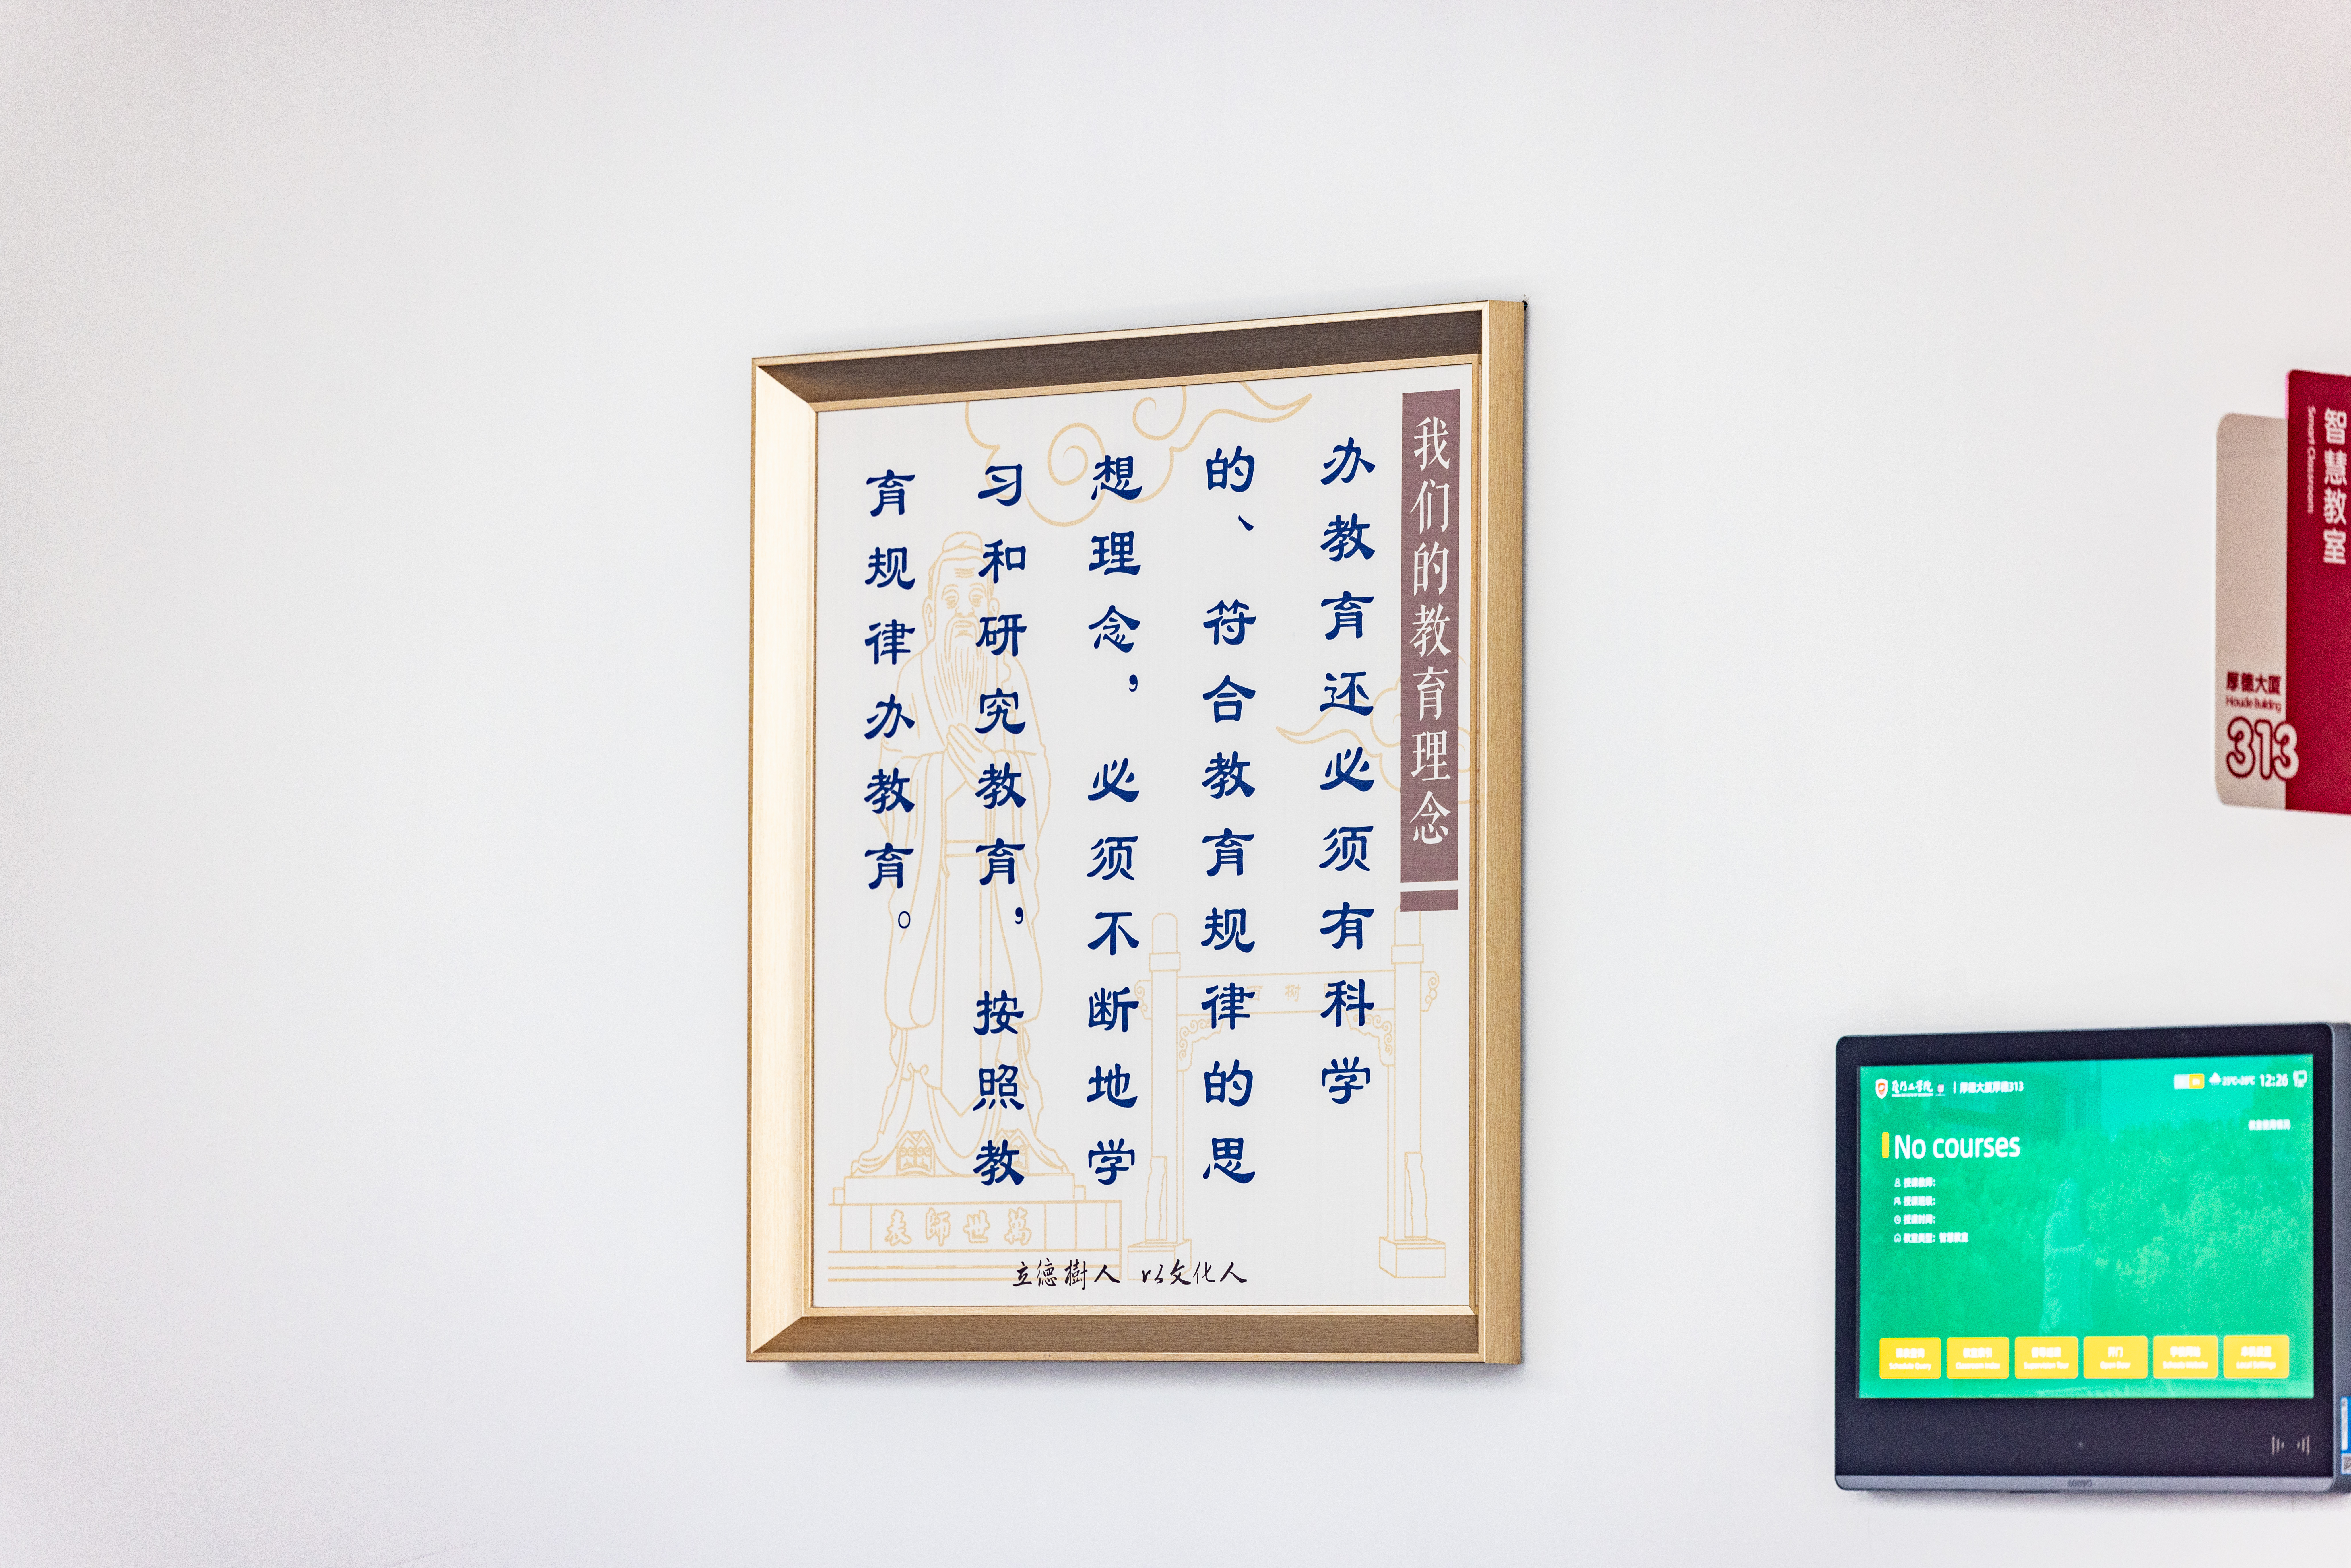 我们的教育理念
办教育还必须有科学
的、符合教育规律的思
想理念，必须不断地学
习和研究教育，按照教
育规律办教育。
萬世師表
立德樹人 以文化人
智慧教室
Smart Classroom
厚德大厦
Houde Building
313
厚德大厦厚德313
12:26
No courses
授课教师：
授课班级：
授课时间：
教室类型：智慧教室
开门
seewo